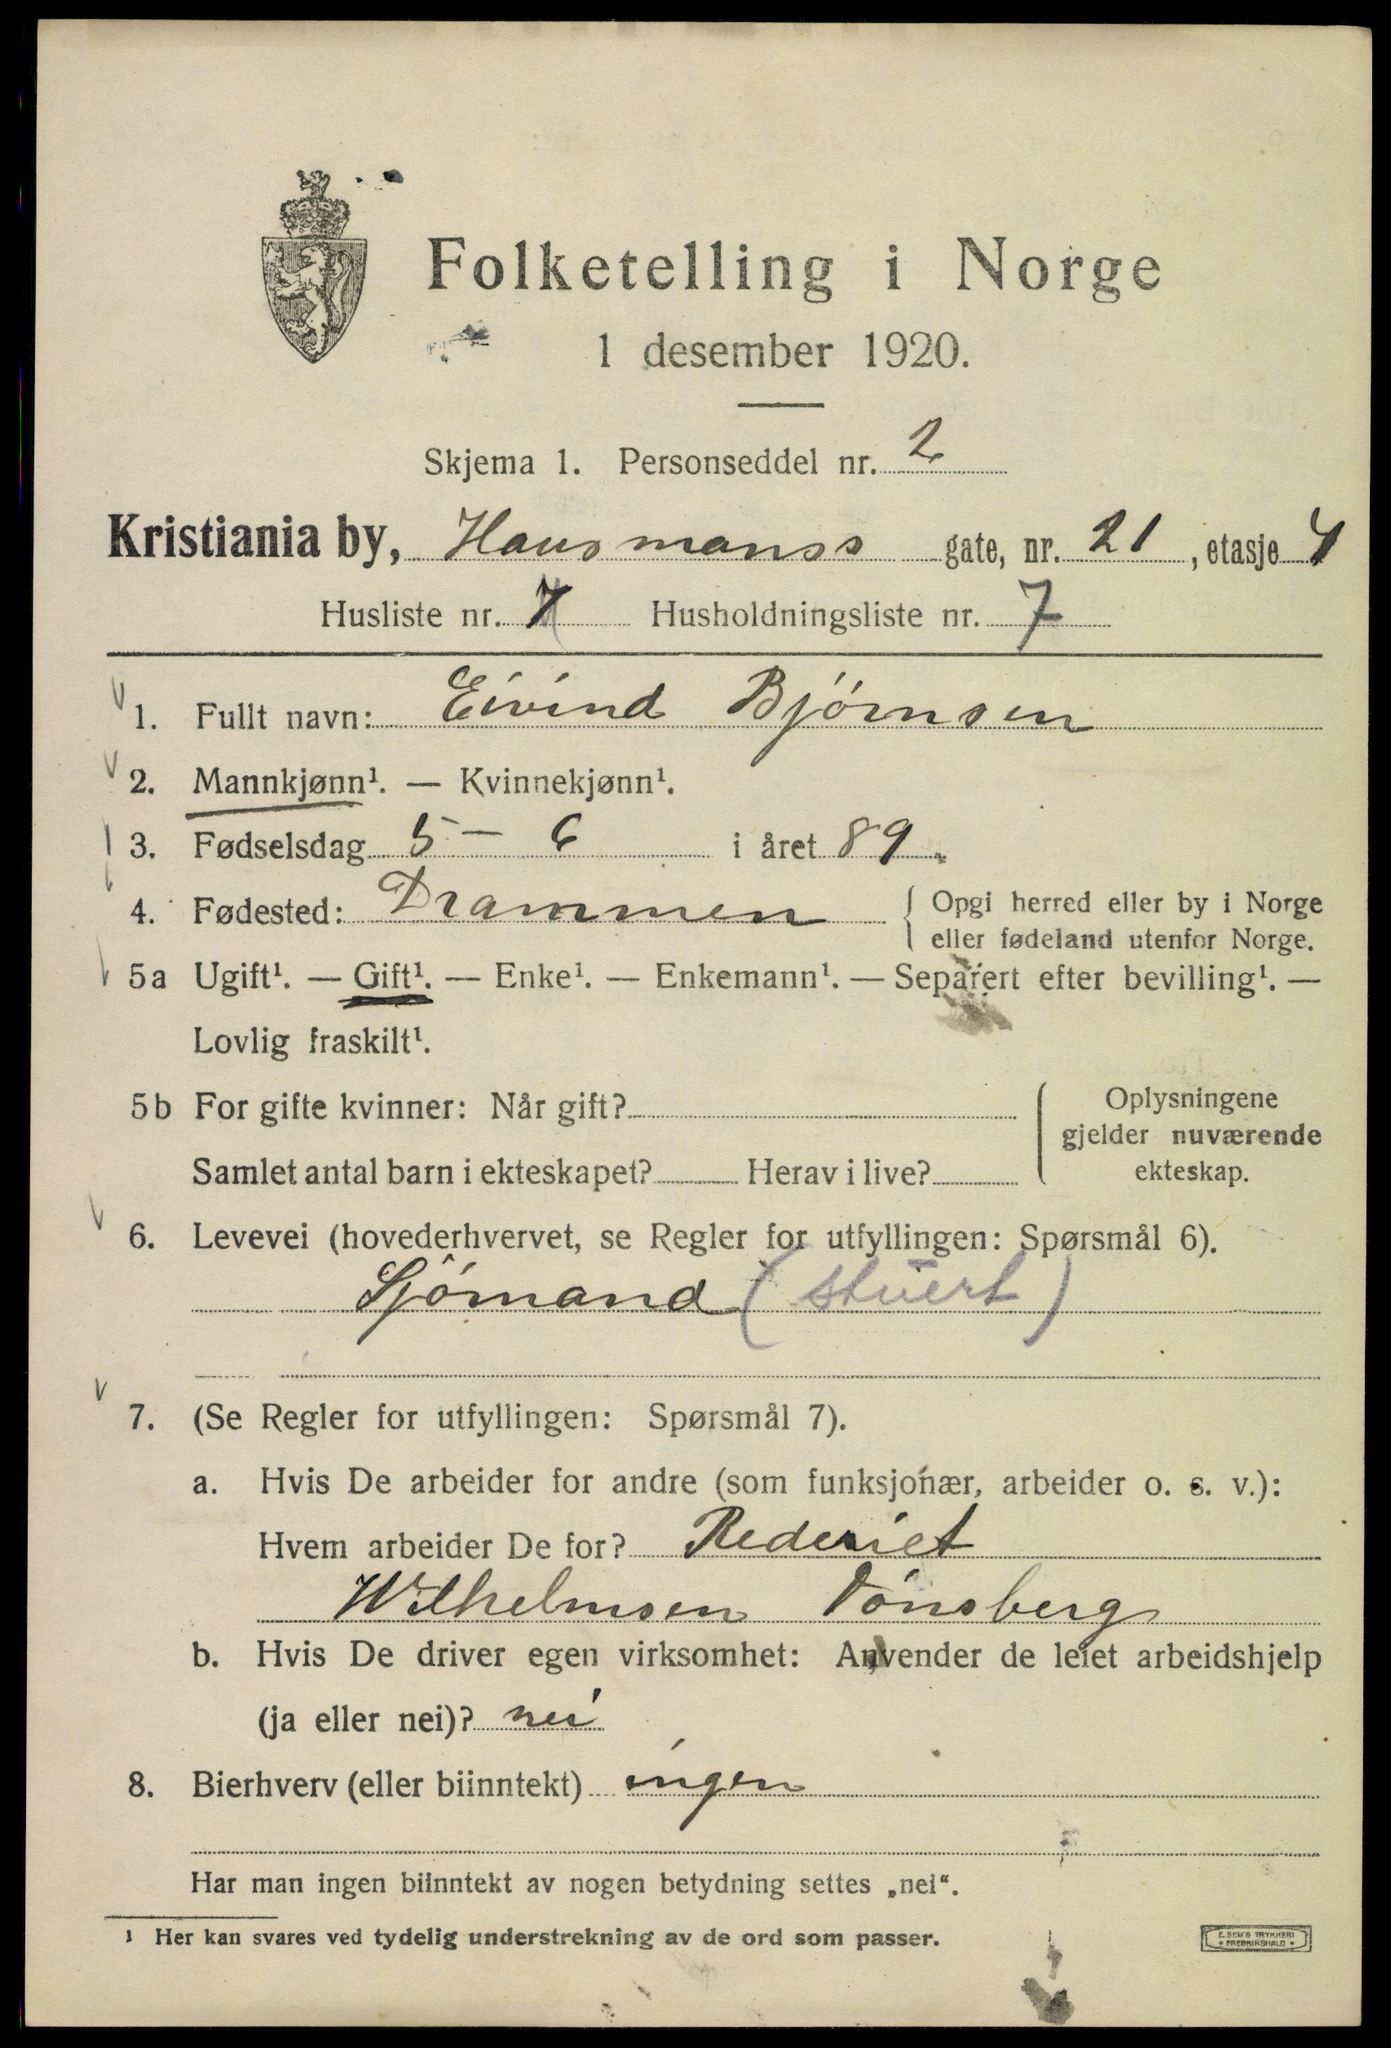 Folketelling i Norge
1 desember 1920.
Skjema 1. Personseddel nr. 2
Kristiania by, Hausmanss gate, nr. 21, etasje 4
Husliste nr. 7 Husholdningsliste nr. 7
1. Fullt navn: Eivind Bjørnsen
2. Mannkjønn¹. — Kvinnekjønn¹.
3. Fødselsdag 5 – 6 i året 89.
4. Fødested: Drammen { Opgi herred eller by i Norge
eller fødeland utenfor Norge.
5a Ugift¹. — Gift¹. — Enke¹. — Enkemann¹. — Separert efter bevilling¹. —
Lovlig fraskilt¹.
5b For gifte kvinner: Når gift?
Samlet antal barn i ekteskapet? Herav i live?
Oplysningene
gjelder nuværende
ekteskap.
6. Levevei (hovederhvervet, se Regler for utfyllingen: Spørsmål 6).
Sjömand (stuert)
7. (Se Regler for utfyllingen: Spørsmål 7).
a. Hvis De arbeider for andre (som funksjonær, arbeider o. s. v.):
Hvem arbeider De for? Rederiet
Wilhelmsen Tönsberg
b. Hvis De driver egen virksomhet: Anvender de leiet arbeidshjelp
(ja eller nei)? nei
8. Bierhverv (eller biinntekt) ingen
Har man ingen biinntekt av nogen betydning settes „nei“.
¹ Her kan svares ved tydelig understrekning av de ord som passer.
E. SEM'S TRYKKERI
FREDRIKSHALD